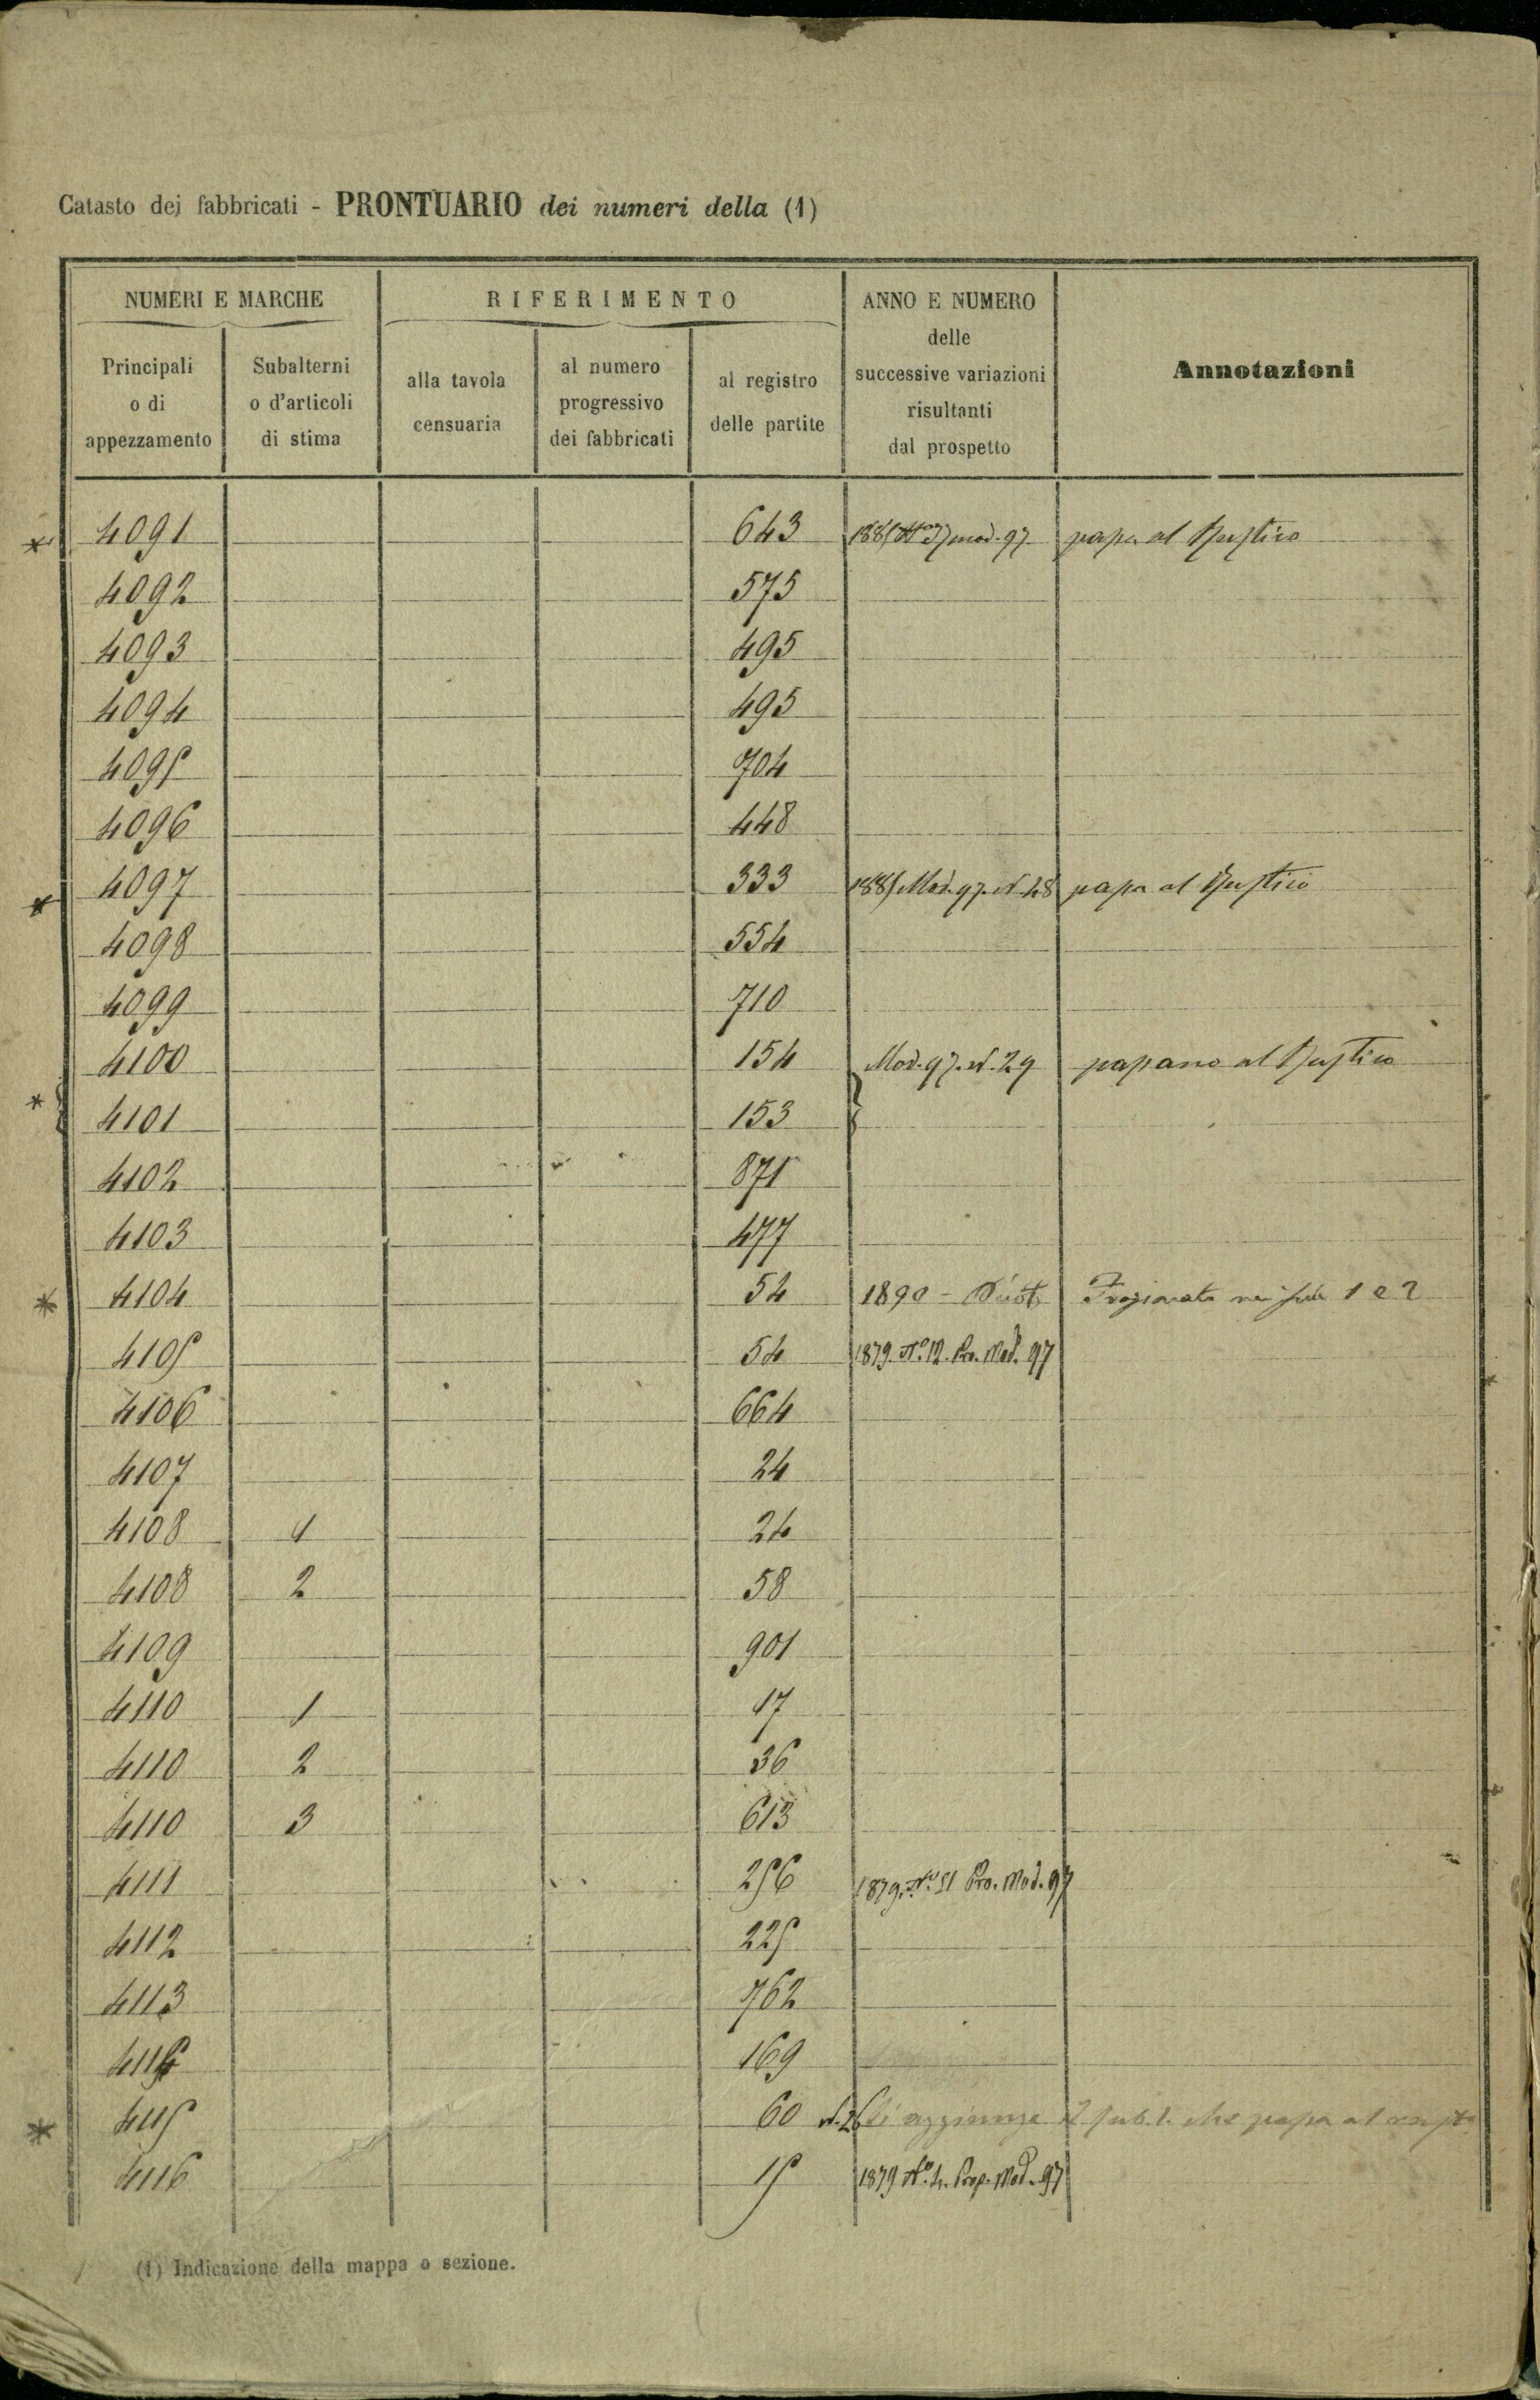 Catasto dei fabbricati - PRONTUARIO dei numeri della (1)
NUMERI E MARCHE
RIFERIMENTO
ANNO E NUMERO delle successive variazioni risultanti dal prospetto
Annotazioni
Principali o di appezzamento
Subalterni o d'articoli di stima
alla tavola censuaria
al numero progressivo dei fabbricati
al registro delle partite
* 4091 643 mod. 97. passa al Rustico
4092 575
4093 495
4094 495
4095 704
4096 448
* 4097 333 1885 Mod. 97. N. 28 passa al Rustico
4098 554
4099 710
4100 154 Mod. 97. N. 29 passano al Rustico
* 4101 153
4102 871
4103 477
* 4104 54 1890 - Frazionato nei sub 1 e 2
4105 54 1879. N.º 12. Pro. Mod. 97
4106 664
4107 24
4108 1 24
4108 2 58
4109 901
4110 1 17
4110 2 36
4110 3 613
4111 256 1879. N.º 11 Pro. Mod. 97
4112 225
4113 762
4114 169
* 4115 60 N. 26 Si aggiunge il sub. 1. che passa al
4116 15 1879 N.º 4. Prop. Mod. 97
(1) Indicazione della mappa o sezione.